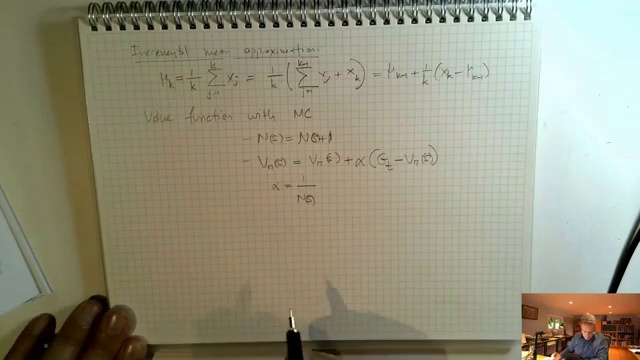 Incremental mean approximation:
μ_k = 1/k ∑_{j=1}^{k} x_j = 1/k (∑_{j=1}^{k-1} x_j + x_k) = μ_{k-1} + 1/k (x_k − μ_{k-1})
Value function with MC
- N(s) = N(s)+1
- V_π(s) = V_π(s) + α (G_t − V_π(s))
α = 1/N(s)